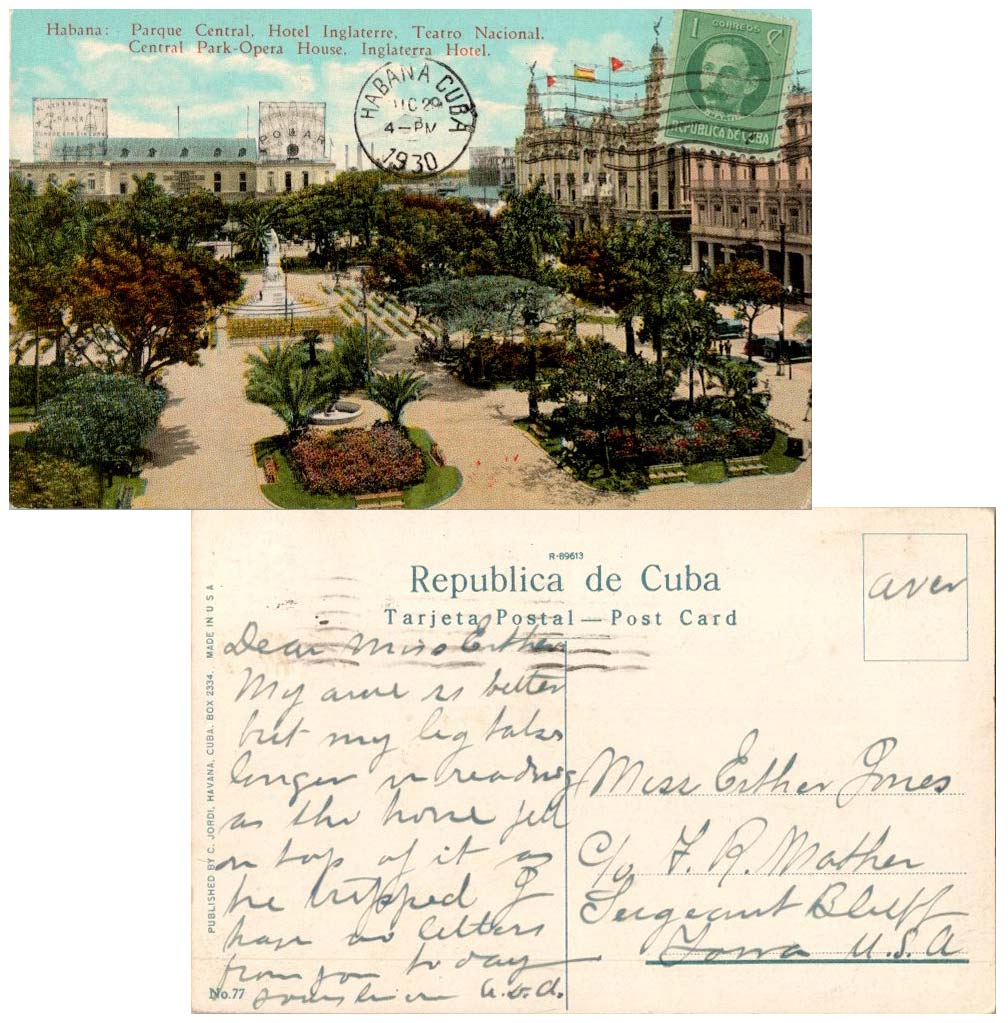 Habana: Parque Central, Hotel Inglaterre, Teatro Nacional.
Central Park-Opera House, Inglaterra Hotel.
HABANA CUBA
4-PM
1930
1 CORREOS
REPUBLICA DE CUBA
POLAR
R-89613
Republica de Cuba
Tarjeta Postal — Post Card
over
PUBLISHED BY C. JORDI, HAVANA, CUBA. BOX 2334. MADE IN U S A
Dear Miss Esther
My arm is better
but my leg takes
longer in
as the horse fell
on top of it as
he tripped I
hope letters
from you to day
No. 77
Miss Esther Jones
c/o F. R. Mather
Sergeant Bluff
Iowa U.S.A